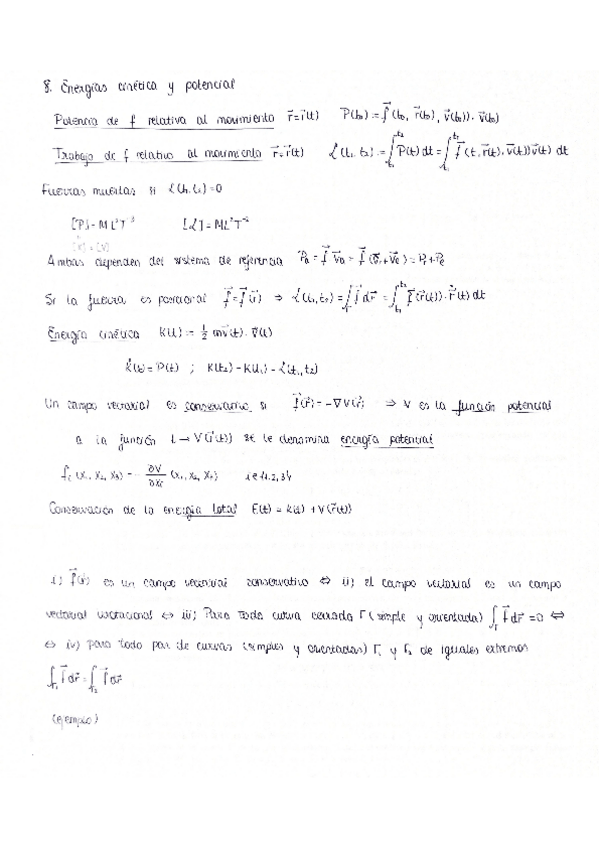 8. Energías cinética y potencial
Potencia de f relativa al movimiento r⃗=r⃗(t) P(t₀) := f⃗(t₀, r⃗(t₀), v⃗(t₀)) · v⃗(t₀)
Trabajo de f relativo al movimiento r⃗=r⃗(t) L(t₁, t₂) := ∫_{t₁}^{t₂} P(t) dt = ∫_{t₁}^{t₂} f⃗(t, r⃗(t), v⃗(t)) v⃗(t) dt
Fuerzas muertas si L(t₁,t₂)=0
[P] = ML²T⁻³ [L] = ML²T⁻²
[K] = [V]
Ambas dependen del sistema de referencia
Si la fuerza es posicional f⃗=f⃗(r⃗) ⇒ L(t₁,t₂) = ∫_Γ f⃗ dr⃗ = ∫_{t₁}^{t₂} f⃗(r⃗(t)) · r⃗̇(t) dt
Energía cinética K(t) := ½ m v⃗(t) · v⃗(t)
K̇(t) = P(t) ; K(t₂) - K(t₁) = L(t₁,t₂)
Un campo vectorial es conservativo si f⃗(r⃗) = -∇V(r⃗) ⇒ V es la función potencial
a la función t → V(r⃗(t)) se le denomina energía potencial
fᵢ (x₁, x₂, x₃) = - ∂V/∂xᵢ (x₁, x₂, x₃) i∈{1,2,3}
Conservación de la energía total E(t) = K(t) + V(r⃗(t))
i) f⃗(r⃗) es un campo vectorial conservativo ⇔ ii) el campo vectorial es un campo
vectorial irrotacional ⇔ iii) Para toda curva cerrada Γ (simple y orientada) ∫_Γ f⃗ dr⃗ = 0 ⇔
⇔ iv) para todo par de curvas (simples y orientadas) Γ₁ y Γ₂ de iguales extremos
∫_{Γ₁} f⃗ dr⃗ = ∫_{Γ₂} f⃗ dr⃗
(ejemplo)